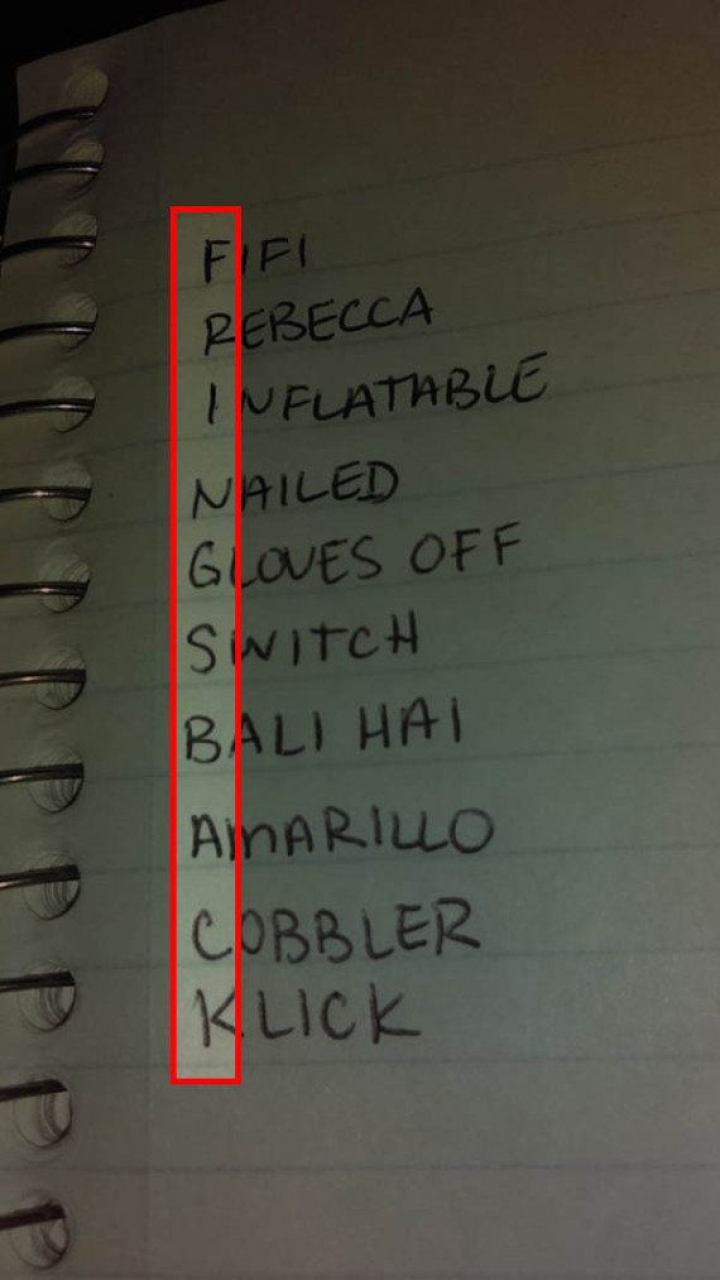 FIFI
REBECCA
INFLATABLE
NAILED
GLOVES OFF
SWITCH
BALI HAI
AMARILLO
COBBLER
KLICK